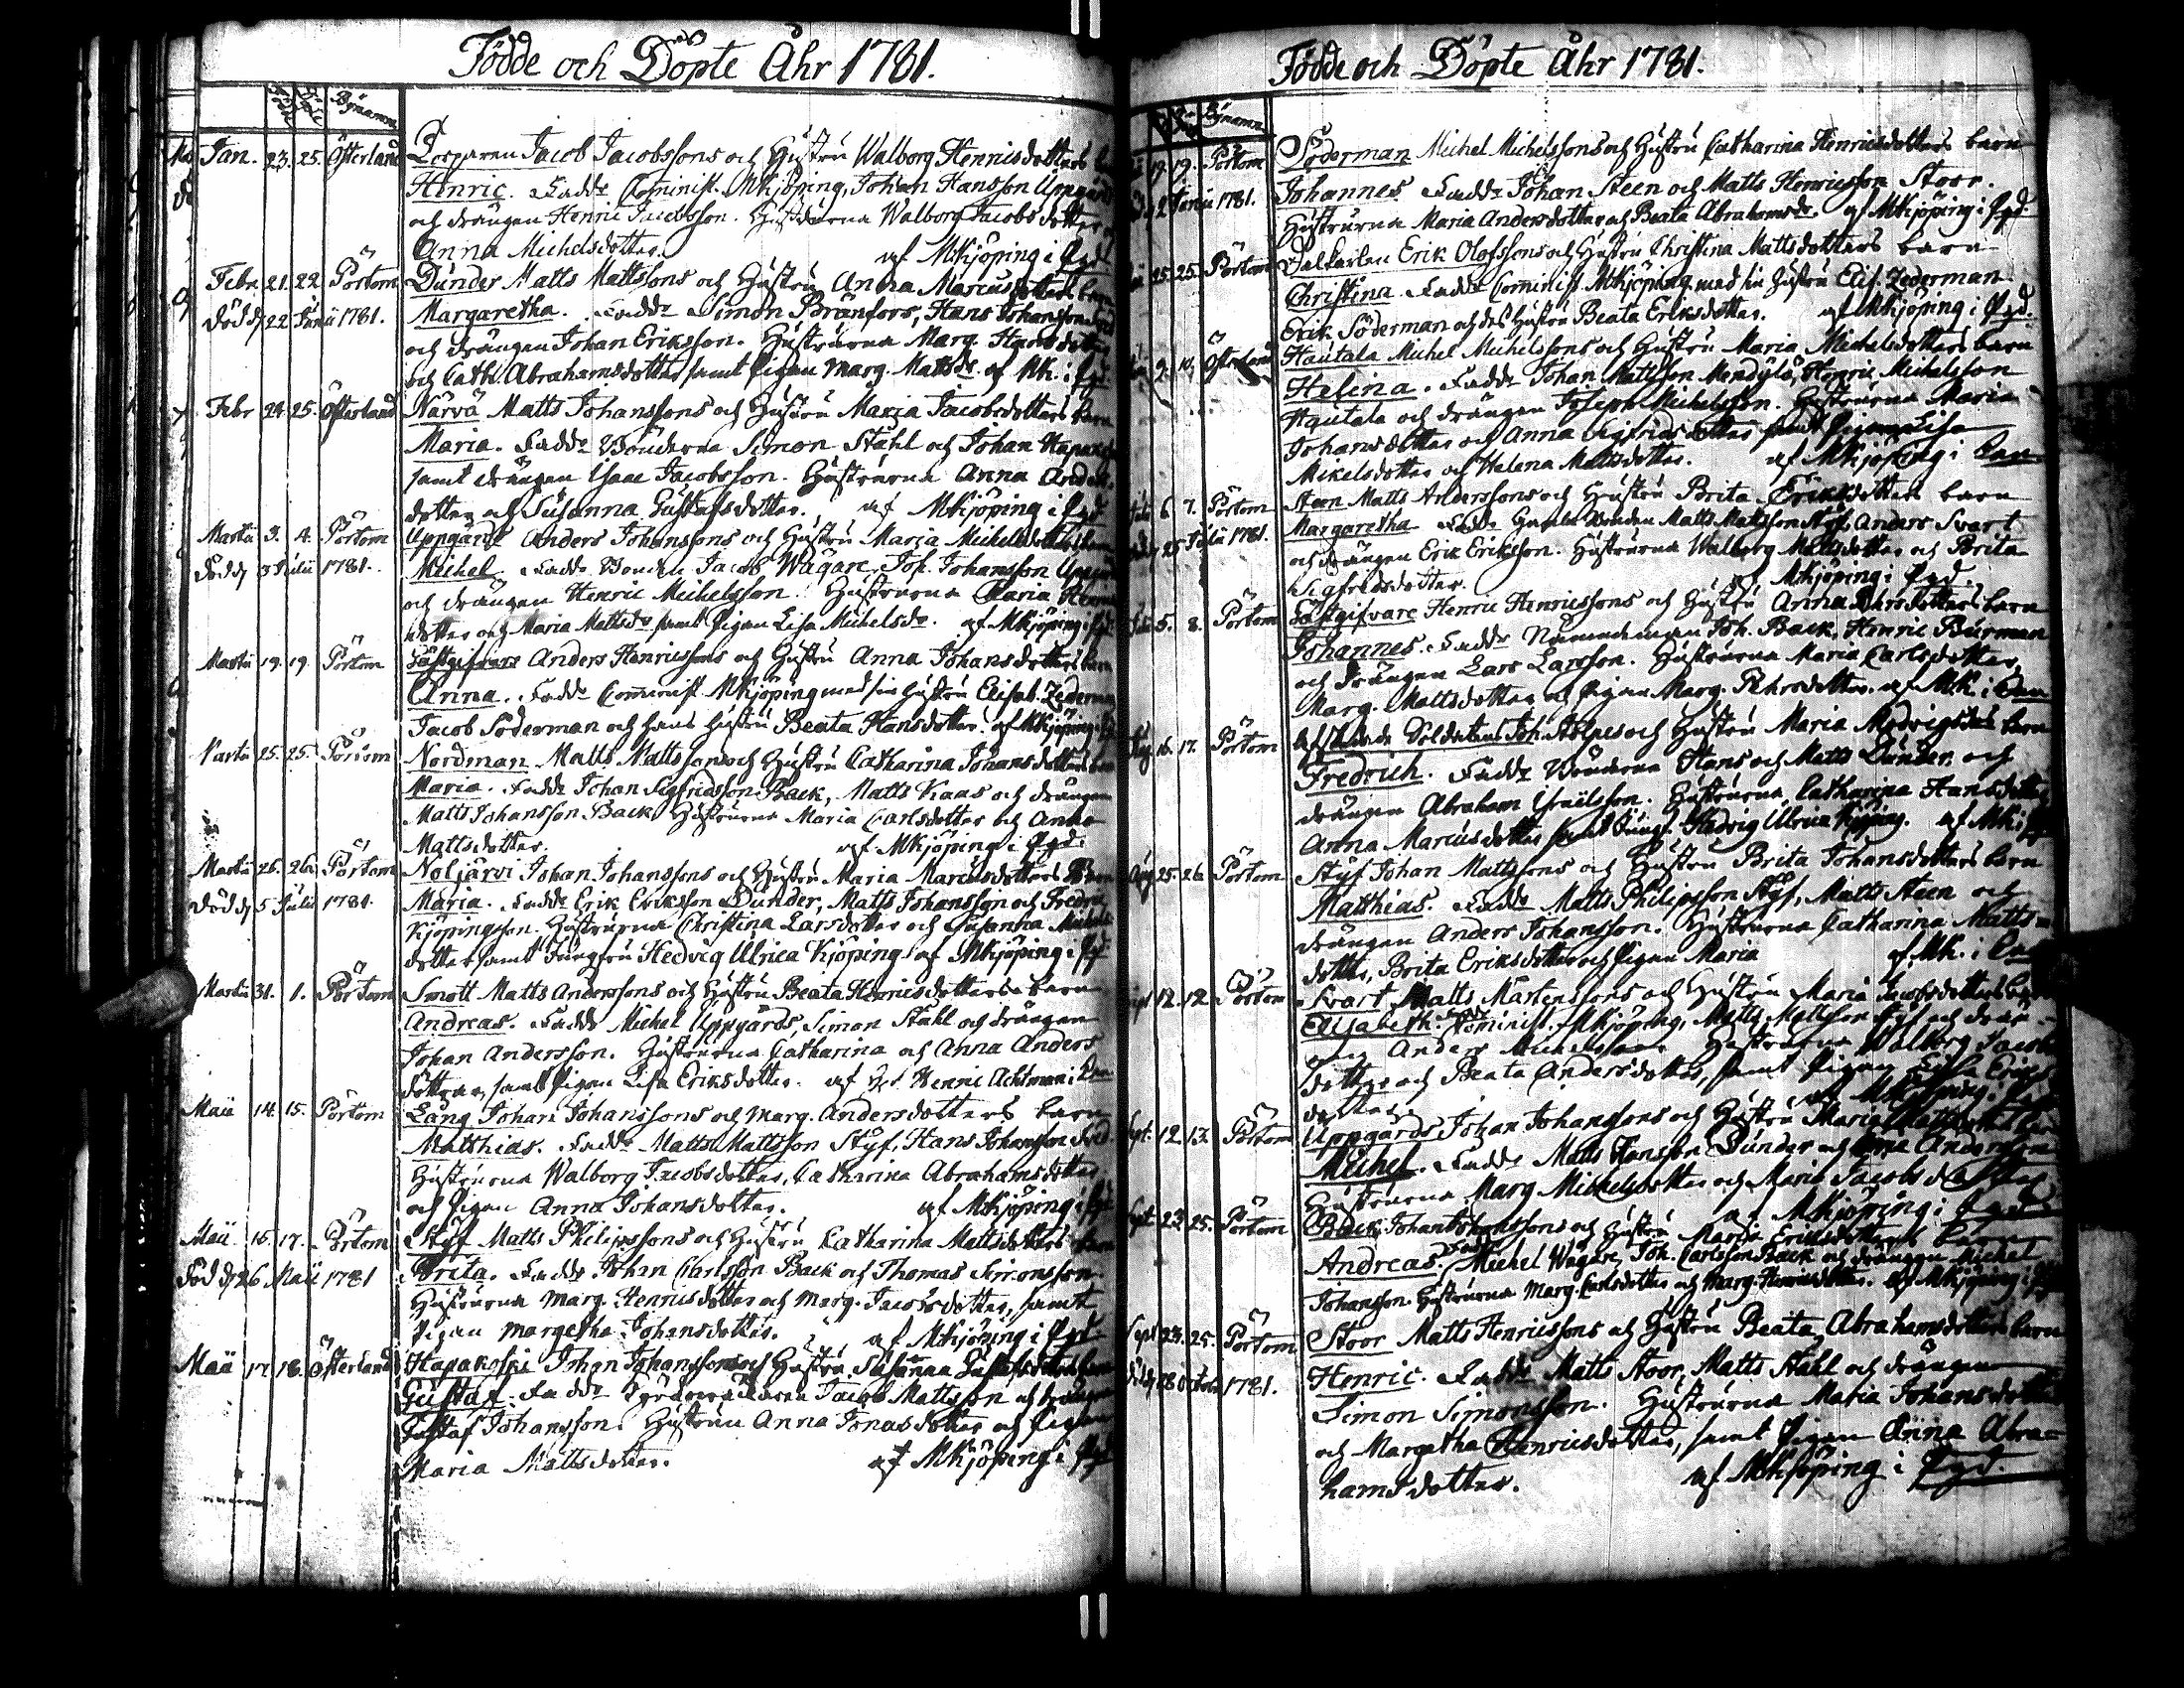 Födde och Döpte Åhr 1781.
Bÿnamn
Jan. 23. 25. Österland Torparen Jacob Jacobssons och Hustru Walborg Henricsdotters
Henric. Fadd: Cominist. MKjöping, Johan Hansson Uppgårds
och drängen Henric Jacobsson. Hustrurna Walborg Jacobsdotter
Anna Michelsdotter. af MKjöping i Pgd.
Febr. 21. 22. Pörtom Dunder Matts Mattssons och Hustru Anna Marcusdotters barn
Död d. 22 Junii 1781. Margaretha. Fadd: Simon Bränfors, Hans Johansson
och drängen Johan Eriksson. Hustrurna Marg. Hansdotter
och Cath. Abrahamsdotter samt Pigan Marg. Mattsdr. af MK. i Pgd
Febr 24. 25. Österland Närvä Matts Johanssons och Hustru Maria Jacobsdotters barn
Maria. Fadd: Bönderna Simon Ståhl och Johan
samt drängen Isaac Jacobsson. Hustrurna Anna
dotter och Susanna Gustafsdotter. af MKjöping i Pgd
Martii 3. 4. Pörtom Uppgårds Anders Johanssons och Hustru Maria Michelsdotters
3 Julii 1781. Michel. Fadd: Bonden Jacob Wägare, Joh. Johansson
och drängen Henric Michelsson. Hustrurna Maria
dotter och Maria Mattsdr. samt Pigan Lisa Michelsdr. af MKjöping i Pgd
Martii 19. 19. Pörtom Gästgifvare Anders Henricssons och Hustru Anna Johansdotters barn
Anna. Fadd: Cominist MKjöping med sin Hustru Elisab. Zederman
Jacob Söderman och hans Hustru Beata Hansdotter. af MKjöping
Martii 25. 25. Pörtom Nordman Matts Mattssons och Hustru Catharina Johansdotters
Maria. Fadd: Johan Sigfridsson Back, Matts Kaas och drängen
Matts Johansson Back. Hustrurna Maria Carlsdotter och Anna
Mattsdotter. af MKjöping i Pgd.
Martii 26. 26. Pörtom Noljärvi Johan Johanssons och Hustru Maria Marcusdotters
Död d. 5 Julii 1781. Maria. Fadd: Erik Eriksson Dunder, Matts Johansson och Fredric
Kjöpingsson. Hustrurna Christina Larsdotter och Susanna
dotter samt Jungfru Hedvig Ulrica Kjöping. af MKjöping i Pgd
Martii 31. 1. Pörtom Smått Matts Anderssons och Hustru Beata Henricsdotters barn
Andreas. Fadd: Michel Uppgårds, Simon Ståhl och drängen
Johan Andersson. Hustrurna Catharina och Anna Anders
döttrar, samt Pigan Lisa Eriksdotter. af Henric Achtman i
Maii 14. 15. Pörtom Lång Johan Johanssons och Marg. Andersdotters barn
Matthias. Fadd: Matts Mattsson Stÿf, Hans Johansson
Hustrurna Walborg Jacobsdotter, Catharina Abrahamsdotter
och Pigan Anna Johansdotter. af MKjöping i Pgd
Maii 16. 17. Pörtom Stÿf Matts Philipssons och Hustru Catharina Mattsdotters
Död d 26 Maii 1781 Brita. Fadd: Johan Carlsson Back och Thomas Simonsson.
Hustrurna Marg. Henricsdotter och Marg. Jacobsdotter, samt
Pigan Margetha Johansdotter. af MKjöping i Pgd.
Maii 17. 18. Österland Hapakoski Johan Johanssons och Hustru Susanna Gustafsdotters
Gustaf. Fadd: Jacob Mattsson och drängen
Gustaf Johansson. Hustrun Anna Jonasdotter och Pigan
Maria Mattsdotter. af MKjöping i Pgd
Födde och Döpte Åhr 1781.
Bÿnamn
19. 19. Pörtom Söderman Michel Michelssons och Hustru Catharina Henricsdotters barn
2 Junii 1781. Johannes. Fadd: Johan Steen och Matts Henricsson Stoor.
Hustrurna Maria Andersdotter och Beata Abrahamsdr. af MKjöping i Pgd
25. 25. Pörtom Dalkarlen Erik Olofssons och Hustru Christina Mattsdotters barn
Christina. Fadd: Cominist MKjöping med sin Hustru Elis. Zederman
Erik Söderman och des Hustru Beata Eriksdotter. af MKjöping i Pgd.
9. 10. Österland Hautala Michel Michelssons och Hustru Maria Michelsdotters barn
Helina. Fadd: Johan Mattsson Mendylä, Henric Michelsson
Hautala och drängen Joseph Michelsson. Hustrurna Maria
Johansdotter och Anna Sigfridsdotter samt Pigan Lisa
Mikelsdotter och Helena Mattsdotter. af MKjöping i
6. 7. Pörtom Steen Matts Anderssons och Hustru Brita Eriksdotters barn
25 Julii 1781. Margaretha Fadd: Gamla Bonden Matts Mattsson Stÿf, Anders Svart
och drängen Erik Eriksson. Hustrurna Walborg Mattsdotter och Brita
Sigfridsdotter. af MKjöping i Pgd.
5. 8. Pörtom Gästgifvare Henric Henricssons och Hustru Anna Pehrsdotters barn
Johannes. Fadd: Nämndeman Joh. Back, Henric Burman
och drängen Lars Larsson. Hustrurna Maria Carlsdotter,
Marg. Mattsdotter och Pigan Marg. Pehrsdotter. af MK. i
Aug 16. 17. Pörtom Afskedade Soldaten Joh. Stolpes och Hustru Maria barn
Fredrich. Fadd: Bönderna Hans och Matts Dunder och
drängen Abraham Israelsson. Hustrurna Catharina Hansdotter
Anna Marcusdotter samt Jungf. Hedvig Ulrica Kjöping. af MK i Pgd
Aug 25. 26. Pörtom Stÿf Johan Mattssons och Hustru Brita Johansdotters barn
Matthias. Fadd: Matts Philipsson Stÿf, Matts Steen och
drängen Anders Johansson. Hustrurna Catharina Matts=
dotter, Brita Eriksdotter och Pigan Maria af MK. i
Sept 12. 12. Pörtom Svart Matts Mårtenssons och Hustru Maria Jacobsdotters barn
Elisabeth. Fadd: Cominist. MKjöping, Matts Mattsson Stÿf och drän=
gen Anders Hustrurna Walborg Jacobs
dotter och Beata Andersdotter, samt Pigan Lisa Eriks
dotter. af MKjöping i Pgd
Sept. 12. 13. Pörtom Uppgårds Johan Johanssons och Hustru Maria Mattsdotters barn
Michel. Fadd: Matts Hansson Dunder och Andersson
Hustrurna Marg. Michelsdotter och Maria Jacobsdotter
af MKjöping i Pgd
Sept 23. 25. Pörtom Back Johan Johanssons och Hustru Maria Eriksdotters barn
Andreas. Fadd: Michel Wägare, Joh. Carlsson Back och drängen Michel
Johansson. Hustrurna Marg. Carlsdotter och Marg. Henricsdotter. af MKjöping i Pgd
Sept 23. 25. Pörtom Stoor Matts Henricssons och Hustru Beata Abrahamsdotters barn
Död d. 18 Octob. 1781. Henric. Fadd: Matts Stoor, Matts Ståhl och drängen
Simon Simonsson. Hustrurna Maria Johansdotter
och Margetha Henricsdotter, samt Pigan Anna Abra=
hamsdotter. af MKjöping i Pgd.